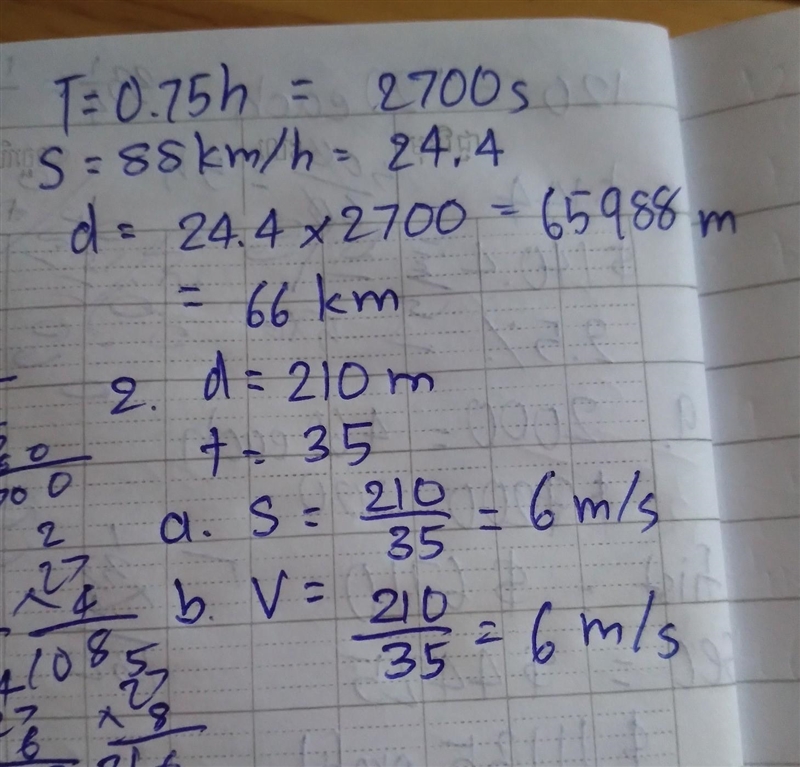 T = 0.75h = 2700s
S = 88km/h = 24.4
d = 24.4 × 2700 = 65988 m
= 66 km
2. d = 210 m
t = 35
a. S = 210/35 = 6 m/s
b. V = 210/35 = 6 m/s
0
00 0
2
27
× 4
108 5
27
× 8
6